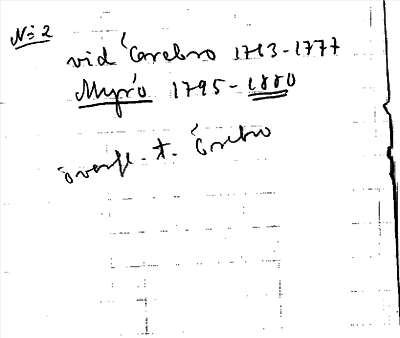 No 2
vid Örebro 1713-1777
Myrö 1795-1880
överfl. t. Örebro